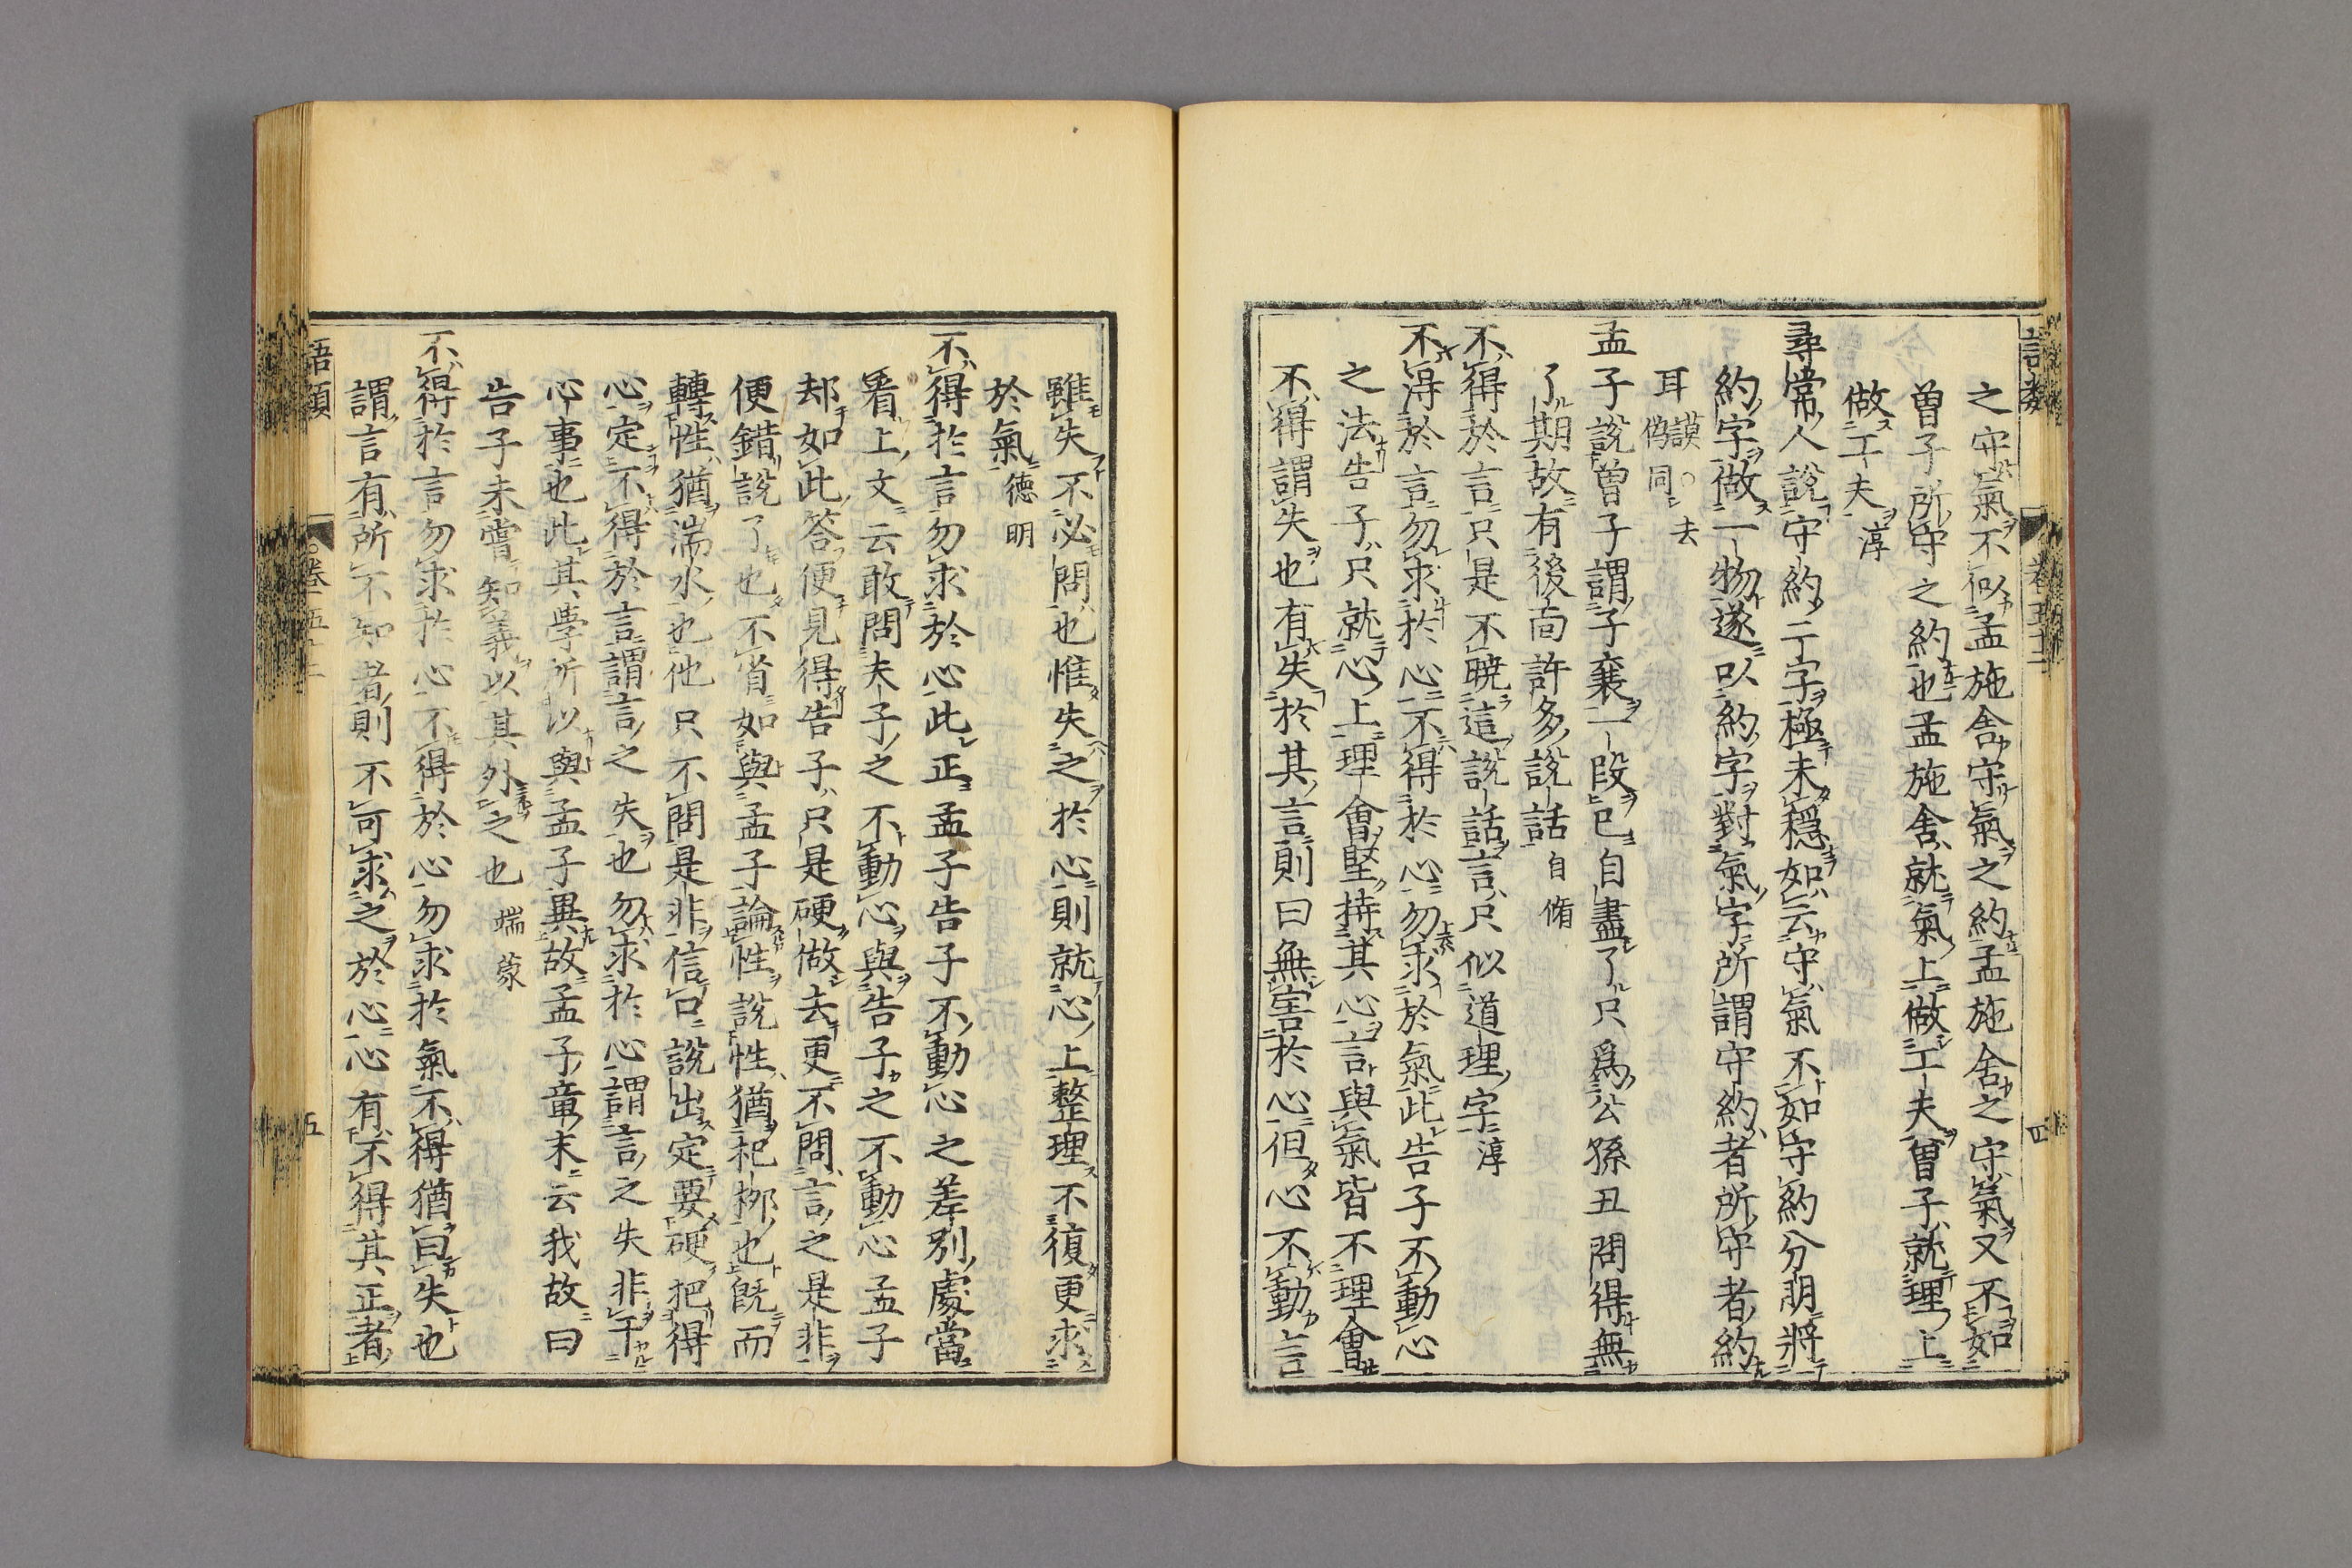 之守氣不似孟施舍守氣之約孟施舍之守氣又不如
曾子所守之約也孟施舍就氣上做工夫曾子就理上
做工夫淳
尋常人說守約二字極未穩如云守氣不如守約分明將
約字做一物遂以約字對氣字所謂守約者所守者約
耳謨○去
偽同
孟子說曾子謂子襄一段已自盡了只爲公孫丑問得無
了期故有後面許多說話自脩
不得於言只是不曉這說話言只似道理字淳
不得於言勿求於心不得於心勿求於氣此告子不動心
之法告子只就心上理會堅持其心言與氣皆不理會
不得謂失也有失於其言則曰無害於心但心不動言
雖失不必問也惟失之於心則就心上整理不復更求
於氣德明
不得於言勿求於心此正孟子告子不動心之差別處當
看上文云敢問夫子之不動心與告子之不動心孟子
却如此答便見得告子只是硬做去更不問言之是非
便錯說了也不省如與孟子論性說性猶杞柳也既而
轉性猶湍水也他只不問是非信口說出定要硬把得
心定不得於言謂言之失也勿求於心謂言之失非干
心事也此其學所以與孟子異故孟子章末云我故曰
告子未嘗知義以其外之也端蒙
不得於言勿求於心不得於心勿求於氣不得猶曰失也
謂言有所不知者則不可求之於心心有不得其正者
語類
卷五十二
五
四